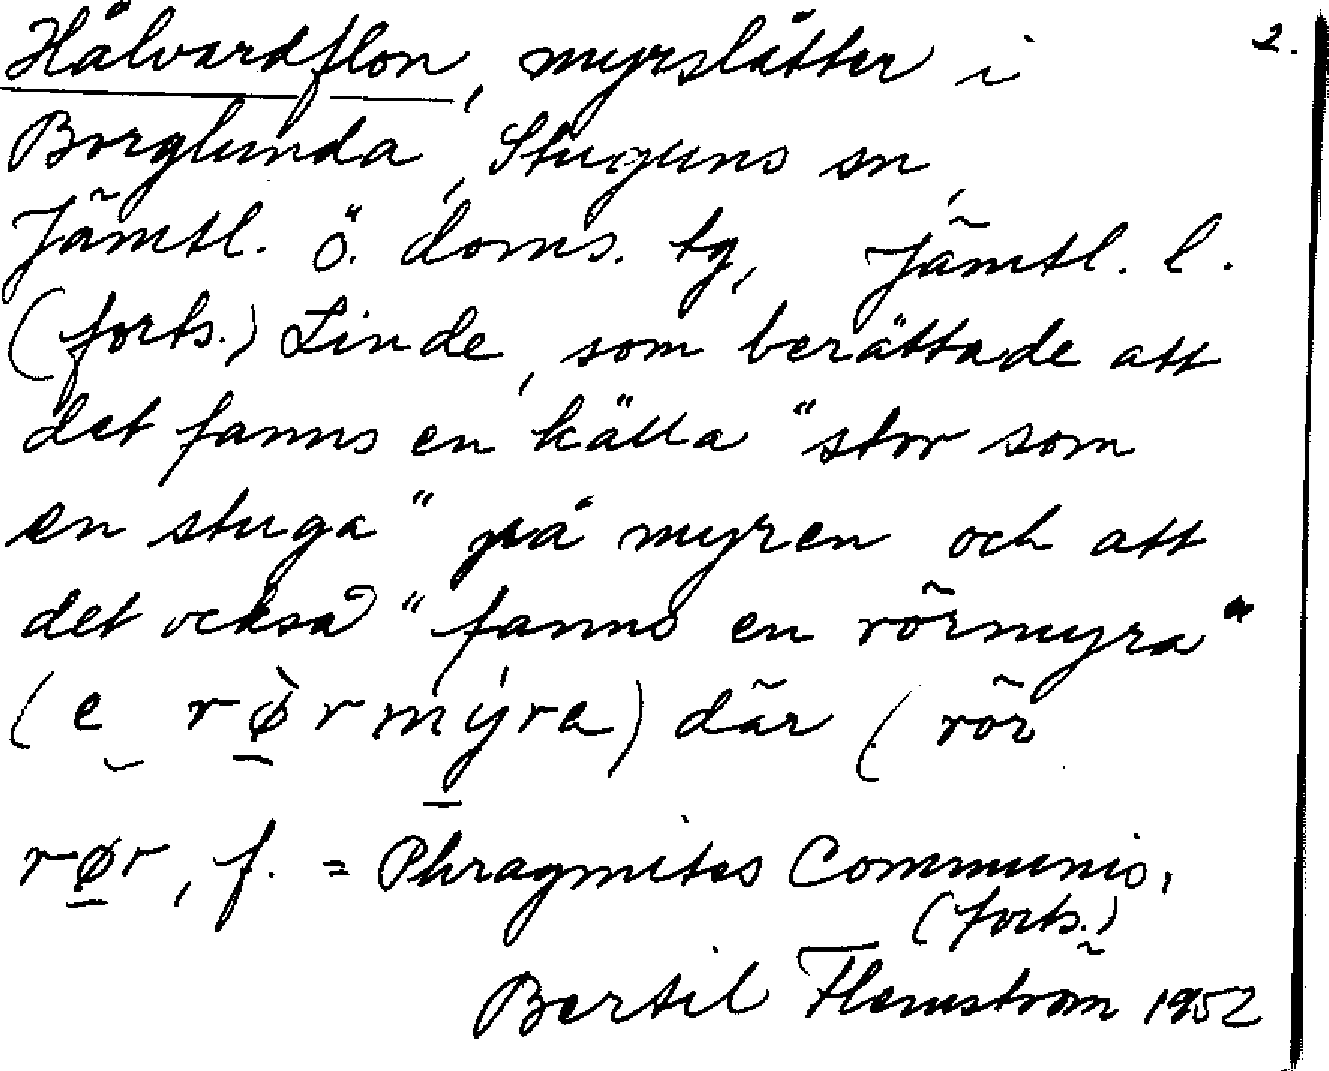 Hålvardflon, myrslåtter i 2.
Borglunda, Stuguns sn,
Jämtl. ö. doms. tg, Jämtl. l.
(forts.) Linde, som berättade att
det fanns en källa "stor som
en stuga" på myren och att
det också "fanns en rörmyra"
(e̮ rø̠̀rmy̠̍ra) där (rör
rø̠r, f. = Phragmites Communis,
(forts.)
Bertil Flemström 1952